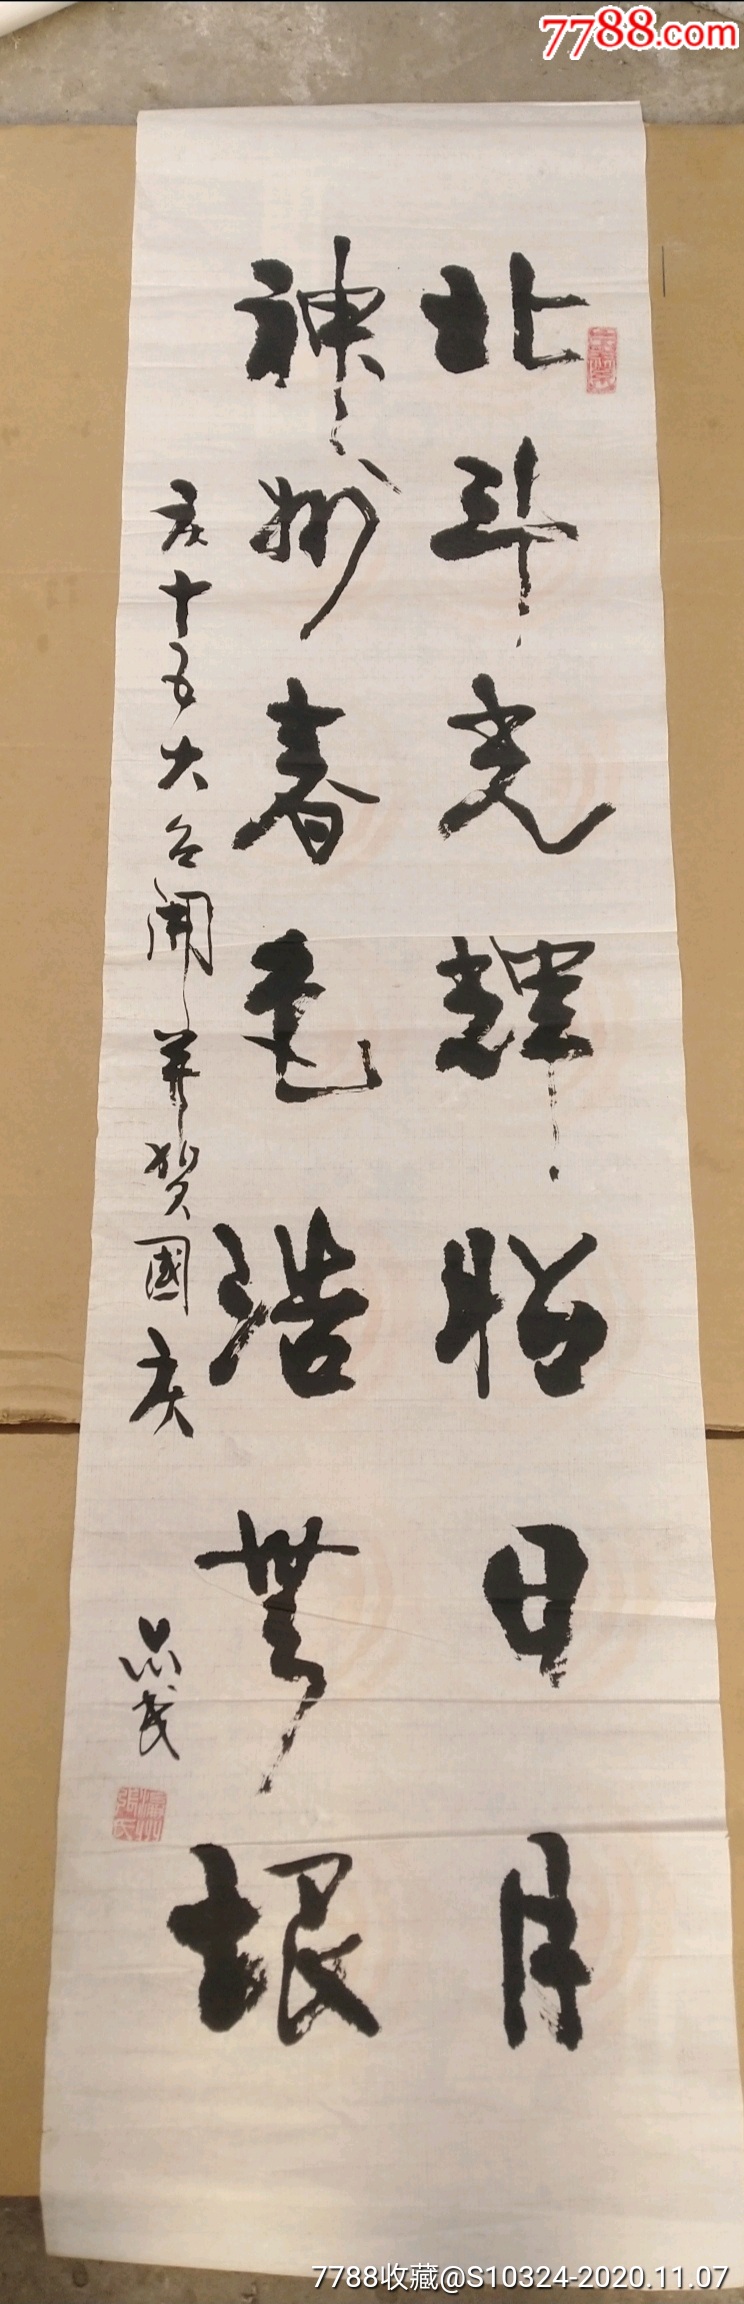 7788.com
北斗光輝昭日月
神州春色浩無垠
庆十五大召開並贺國庆
張氏
7788收藏@S10324-2020.11.07